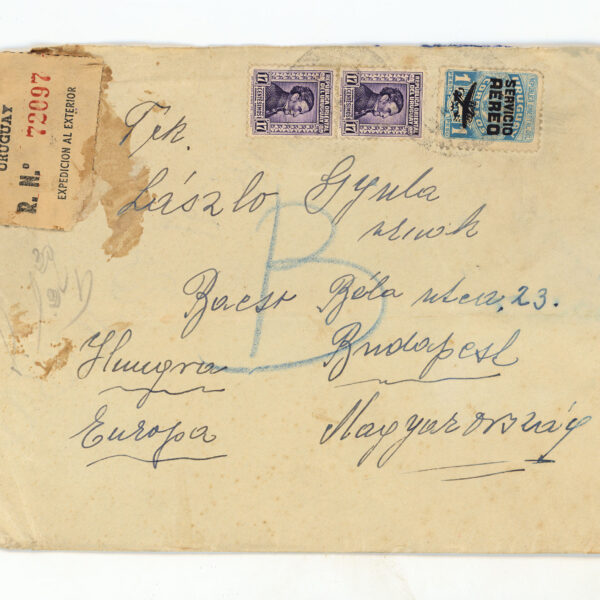 URUGUAY
R. N.º 72097
EXPEDICION AL EXTERIOR
17
17
1
SERVICIO
AEREO
László Gyula
Bacsó Béla utca. 23.
Hungria Budapest
Europa Magyarország
B